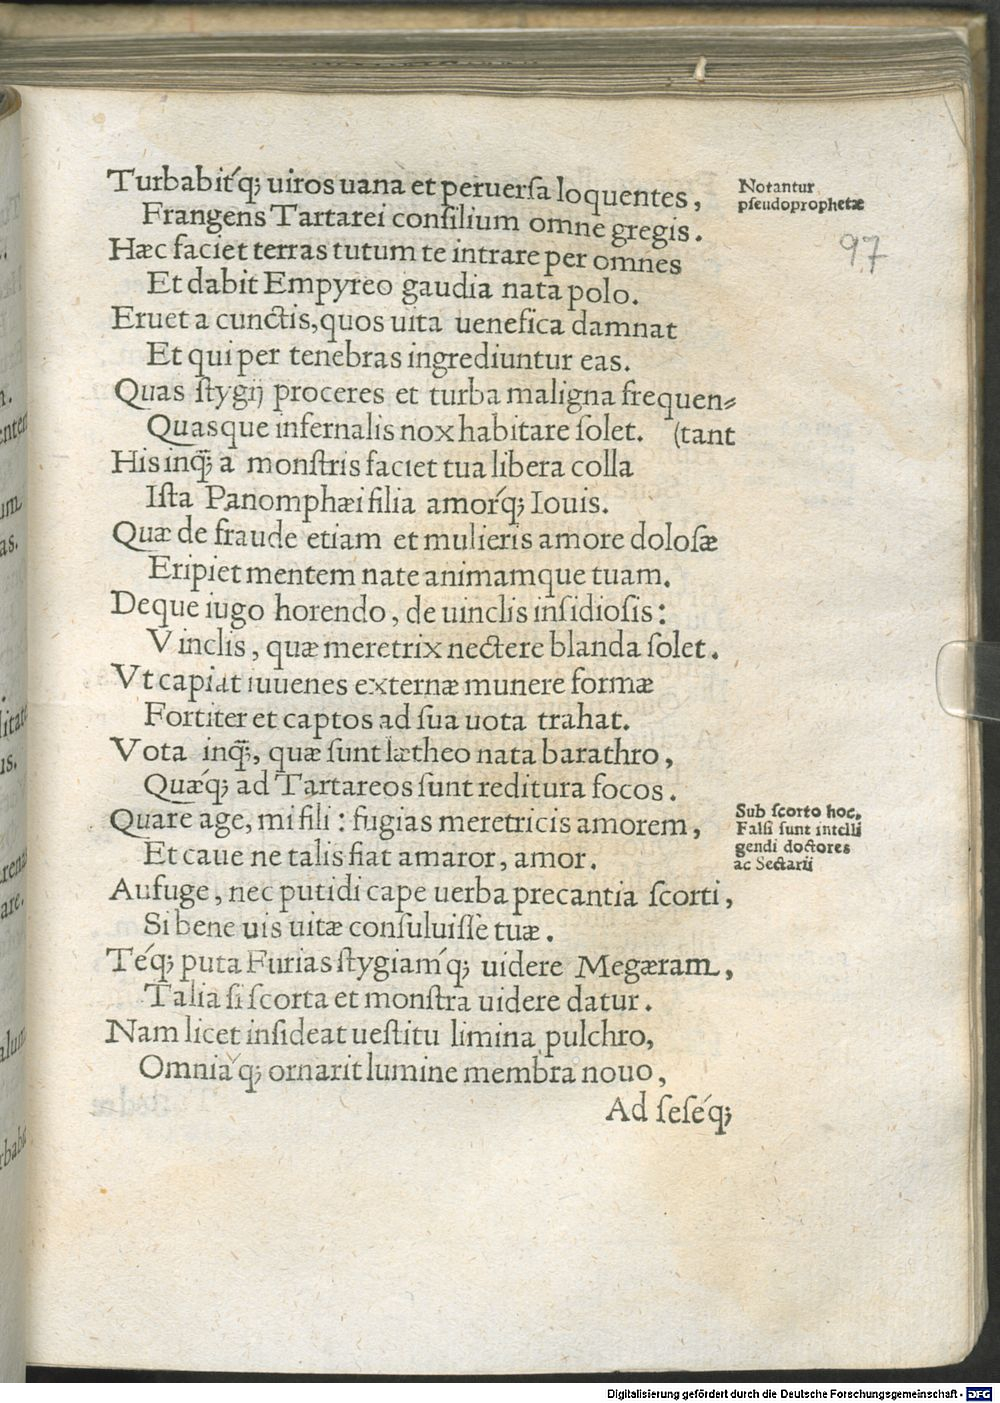 Turbabit́q; uiros uana et peruerſa loquentes,
Notantur
pſeudoprophetæ
Frangens Tartarei conſilium omne gregis.
97
Hæc faciet terras tutum te intrare per omnes
Et dabit Empyreo gaudia nata polo.
Eruet a cunctis, quos uita uenefica damnat
Et qui per tenebras ingrediuntur eas.
Quas ſtygij proceres et turba maligna frequen⸗
Quasque infernalis nox habitare ſolet. (tant
His inq̃; a monſtris faciet tua libera colla
Iſta Panomphæi filia amorq́; Iouis.
Quæ de fraude etiam et mulieris amore doloſæ
Eripiet mentem nate animamque tuam.
Deque iugo horendo, de uinclis inſidioſis:
Vinclis, quæ meretrix nectere blanda ſolet.
Vt capiat iuuenes externæ munere formæ
Fortiter et captos ad ſua uota trahat.
Vota inq̃;, quæ ſunt lætheo nata barathro,
Quæq́; ad Tartareos ſunt reditura focos.
Quare age, mi fili: fugias meretricis amorem,
Sub ſcorto hoc,
Falſi ſunt intelli
gendi doctores
ac Sectarii
Et caue ne talis fiat amaror, amor.
Aufuge, nec putidi cape uerba precantia ſcorti,
Si bene uis uitæ conſuluiſſe tuæ.
Téq́; puta Furias ſtygiamq́; uidere Megæram,
Talia ſi ſcorta et monſtra uidere datur.
Nam licet inſideat ueſtitu limina pulchro,
Omniaq́; ornarit lumine membra nouo,
Ad ſeſeq́;
Digitalisierung gefördert durch die Deutsche Forschungsgemeinschaft - DFG